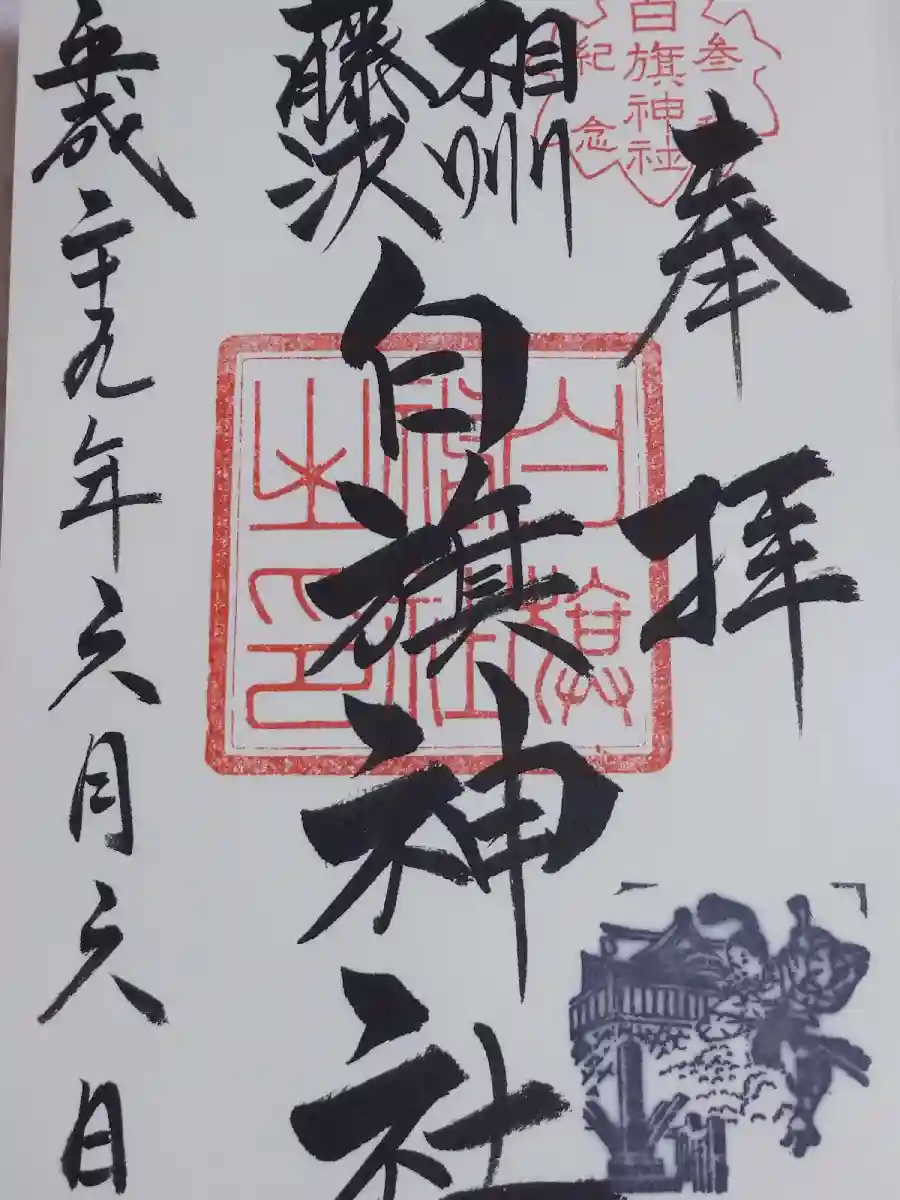 奉拝
参拝
白旗神社
紀念
相州
藤沢
白旗神社
白旗
神社
之印
平成二十九年六月六日